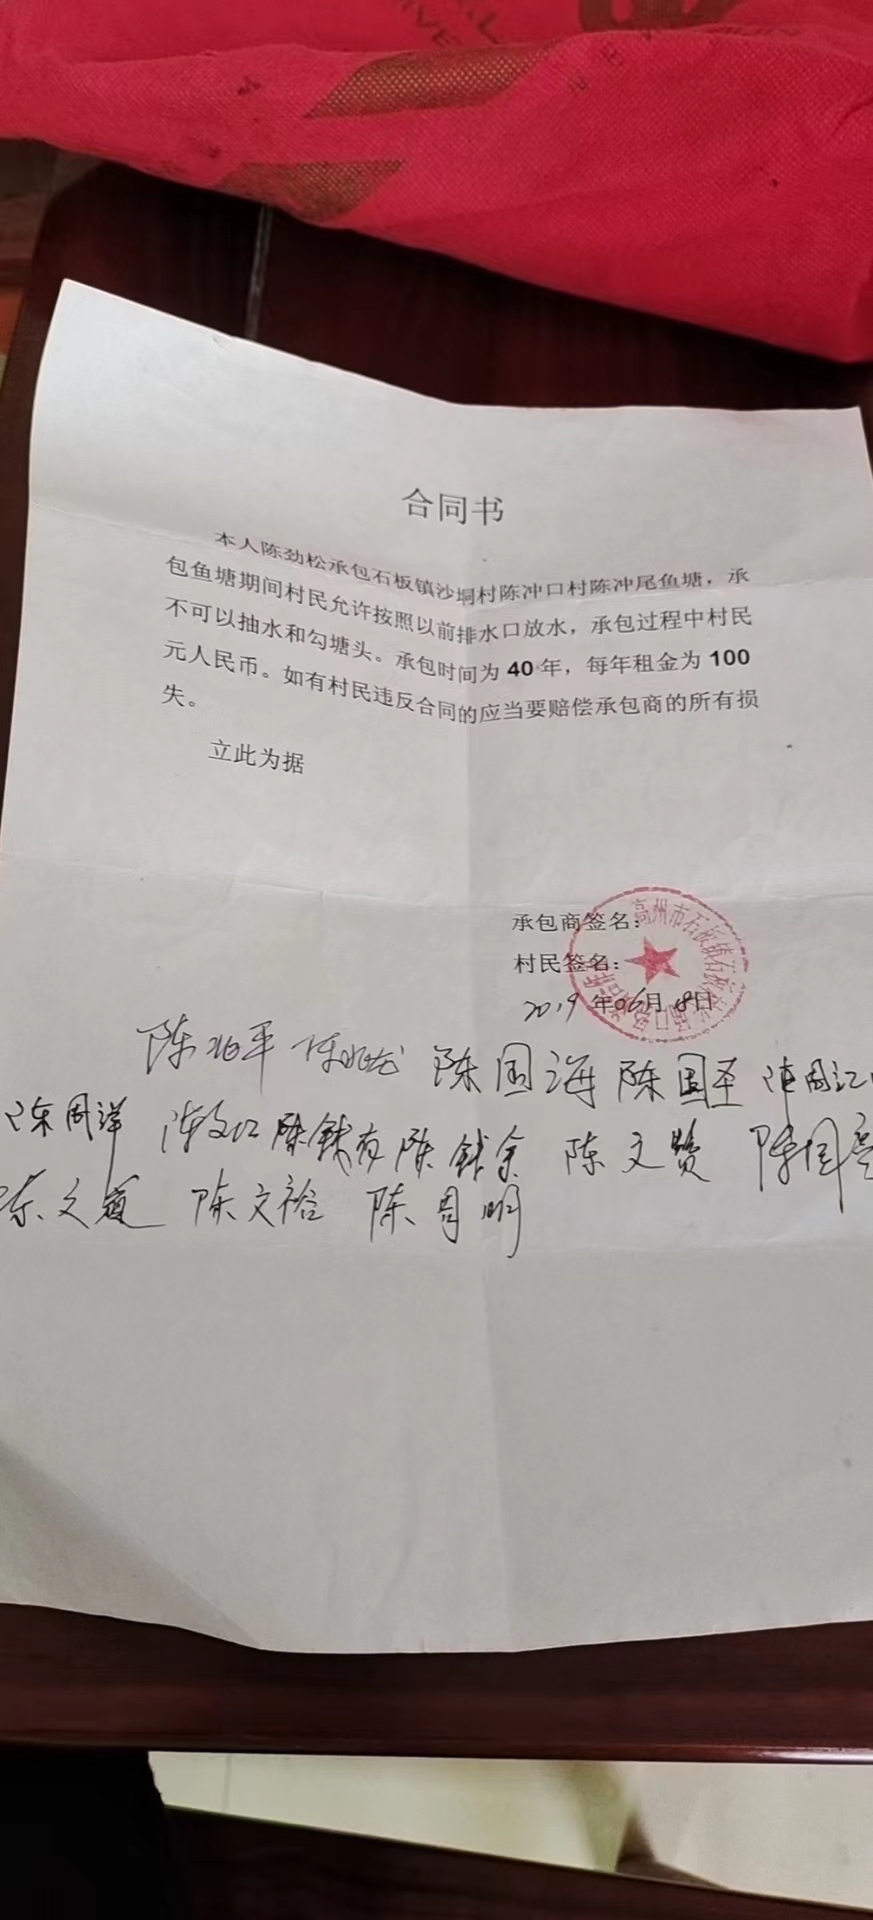 合同书
本人陈劲松承包石板镇沙垌村陈冲口村陈冲尾鱼塘，承
包鱼塘期间村民允许按照以前排水口放水，承包过程中村民
不可以抽水和勾塘头。承包时间为40年，每年租金为100
元人民币。如有村民违反合同的应当要赔偿承包商的所有损
失。
立此为据
承包商签名：
村民签名：
2019年06月18日
高州市石板镇
陈 平 陈 龙 陈国海 陈国圣 陈周江
陈周洋 陈文江 陈钱有 陈钱余 陈文赞 陈国
陈文道 陈文裕 陈周明